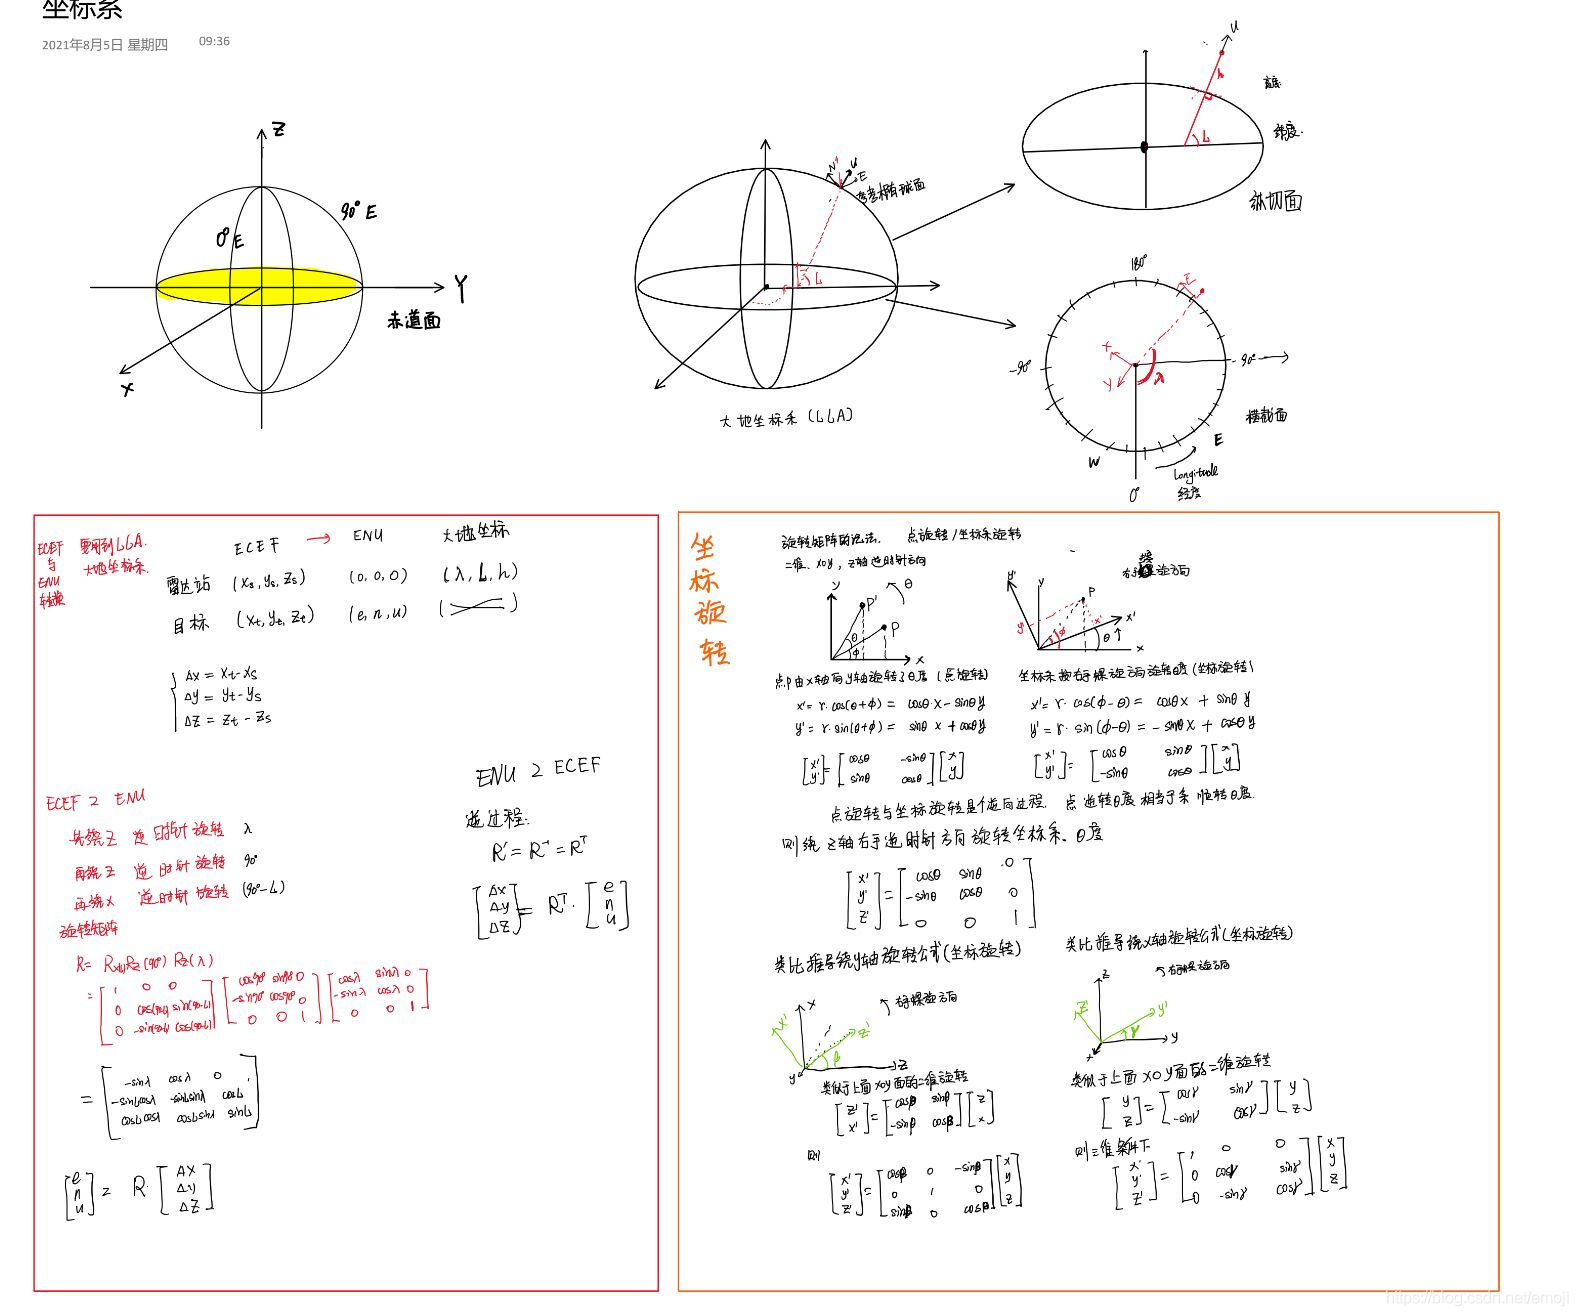 坐标系
2021年8月5日 星期四 09:36
Z
90° E
0° E
Y
赤道面
X
N
u
E
参考椭球面
L
大地坐标系(LLA)
u
h
高度
L
纬度.
纵切面
180°
E
-90°
X
Y
λ
90°
横截面
W
E
Longitude
经度
0°
ECEF
与
ENU
转换
要用到LLA.
大地坐标系.
ECEF → ENU 大地坐标
雷达站 (xs, ys, zs) (0, 0, 0) (λ, L, h)
目标 (xt, yt, zt) (e, n, u) ( )
Δx = xt-xs
Δy = yt-ys
Δz = zt-zs
ECEF 2 ENU
先绕Z 逆时针旋转 λ
再绕Z 逆时针旋转 90°
再绕X 逆时针旋转 (90°-L)
旋转矩阵
R= Rz(90°) Rz(λ)
= [ 1 0 0 ] [ cos90° sin90° 0 ] [ cosλ sinλ 0 ]
[ 0 cos(90-L) sin(90-L) ] [ -sin90° cos90° 0 ] [ -sinλ cosλ 0 ]
[ 0 -sin(90-L) cos(90-L) ] [ 0 0 1 ] [ 0 0 1 ]
= [ -sinλ cosλ 0 ]
[ -sinLcosλ -sinLsinλ cosL ]
[ cosLcosλ cosLsinλ sinL ]
[ e n u ] = R· [ Δx Δy Δz ]
ENU 2 ECEF
逆过程:
R' = R⁻¹ = Rᵀ
[ Δx Δy Δz ] = Rᵀ · [ e n u ]
坐
标
旋
转
旋转矩阵的说法. 点旋转/坐标系旋转
二维、xoy, z轴逆时针方向
y
P'
θ
P
θ
φ
x
右手螺旋方向
y'
y
P
x'
y'
x'
φ
θ
x
点P由x轴向y轴旋转了θ度(点旋转)
x'= r·cos(θ+φ) = cosθ·x - sinθ y
y'= r·sin(θ+φ) = sinθ x + cosθ y
[ x' y' ] = [ cosθ -sinθ ; sinθ cosθ ] [ x y ]
坐标系按右手螺旋方向旋转θ度(坐标旋转)
x'= r·cos(φ-θ) = cosθ x + sinθ y
y'= r·sin(φ-θ) = -sinθ x + cosθ y
[ x' y' ] = [ cosθ sinθ ; -sinθ cosθ ] [ x y ]
点旋转与坐标旋转是个逆向过程. 点逆转θ度相当于系顺转θ度.
则绕Z轴右手逆时针方向旋转坐标系、θ度
[ x' ] = [ cosθ sinθ 0 ]
[ y' ] [ -sinθ cosθ 0 ]
[ z' ] [ 0 0 1 ]
类比推导绕y轴旋转公式(坐标旋转)
x
右手螺旋方向
x'
z'
β
y
z
类似于上面xoy面的二维旋转
[ z' x' ] = [ cosβ sinβ ; -sinβ cosβ ] [ z x ]
则
[ x' ] = [ cosβ 0 -sinβ ] [ x ]
[ y' ] [ 0 1 0 ] [ y ]
[ z' ] [ sinβ 0 cosβ ] [ z ]
类比推导绕x轴旋转公式(坐标旋转)
z
右手螺旋方向
z'
y'
γ
x
y
类似于上面xoy面的二维旋转
[ y z ] = [ cosγ sinγ ; -sinγ cosγ ] [ y z ]
则三维条件下
[ x' ] = [ 1 0 0 ] [ x ]
[ y' ] [ 0 cosγ sinγ ] [ y ]
[ z' ] [ 0 -sinγ cosγ ] [ z ]
https://blog.csdn.net/emoji